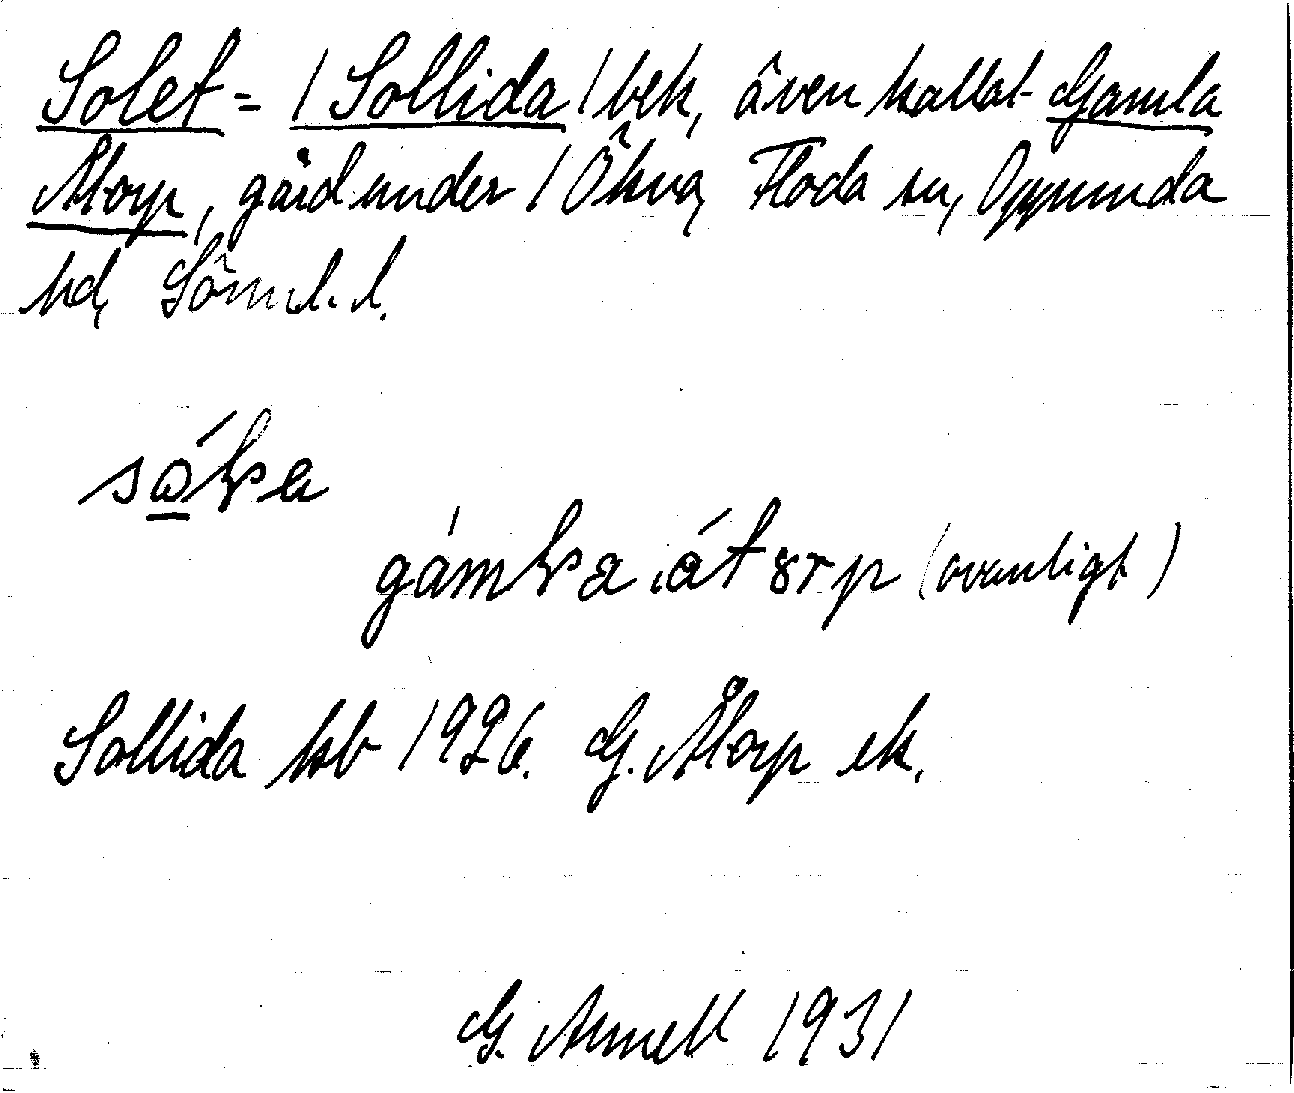 Solet = / Sollida / bek, även kallat Gamla
Åtorp, gård under / Ökna, Floda sn, Oppunda
hd, Sörml. l.
(ovanligt)
Sollida kb 1926. G. Åtorp ek.
G. Arnell 1931